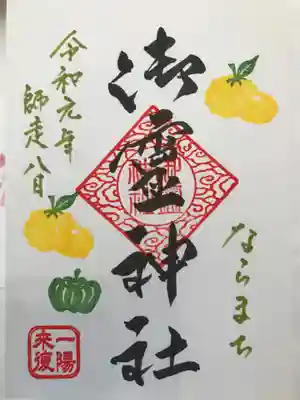 御霊神社
ならまち
令和元年
師走八日
一陽
来復